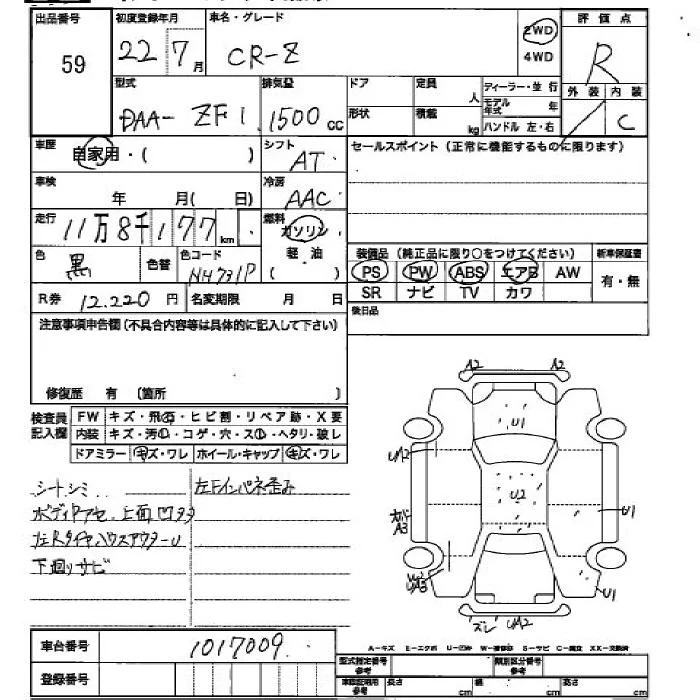 出品番号 初度登録年月 車名・グレード 評価点
59 22 7月 CR-Z 2WD 4WD R
型式 排気量 ドア 定員 人 ディーラー・並行 外装 内装
DAA- ZF1 1500cc 形状 積載 kg モデル年式 年 C
ハンドル 左・右
車歴 自家用・( ) シフト AT セールスポイント(正常に機能するものに限ります)
車検 年 月( 日) 冷房 AAC
走行 11万8千177km 燃料 ガソリン 軽油 ( )
色 黒 色替 色コード NH731P
装備品(純正品に限り○をつけてください) 新車保証書
PS PW ABS エアB AW 有・無
SR ナビ TV カワ
R券 12.220円 名変期限 月 日 後日品
注意事項申告欄(不具合内容等は具体的に記入して下さい)
修復歴 有 〔箇所 〕
検査員記入欄 FW キズ・飛石・ヒビ割・リペア跡・X要
内装 キズ・汚レ・コゲ・穴・スレ・ヘタリ・破レ
ドアミラー キズ・ワレ ホイール・キャップ キズ・ワレ
シートシミ 左Fインパネ歪み
ボディアセ、上面凹多々
左RタイヤハウスアウターU
下廻りサビ
A2 A2
U1
UA2
U2
カバーA3 U1
U1
ズレ UA2
車台番号 1017009
登録番号
A-キズ E-エクボ U-凹み W-補修跡 S-サビ C-腐食 XX-交換済
型式指定番号 参考 類別区分番号 参考
長さ cm 幅 cm 高さ cm